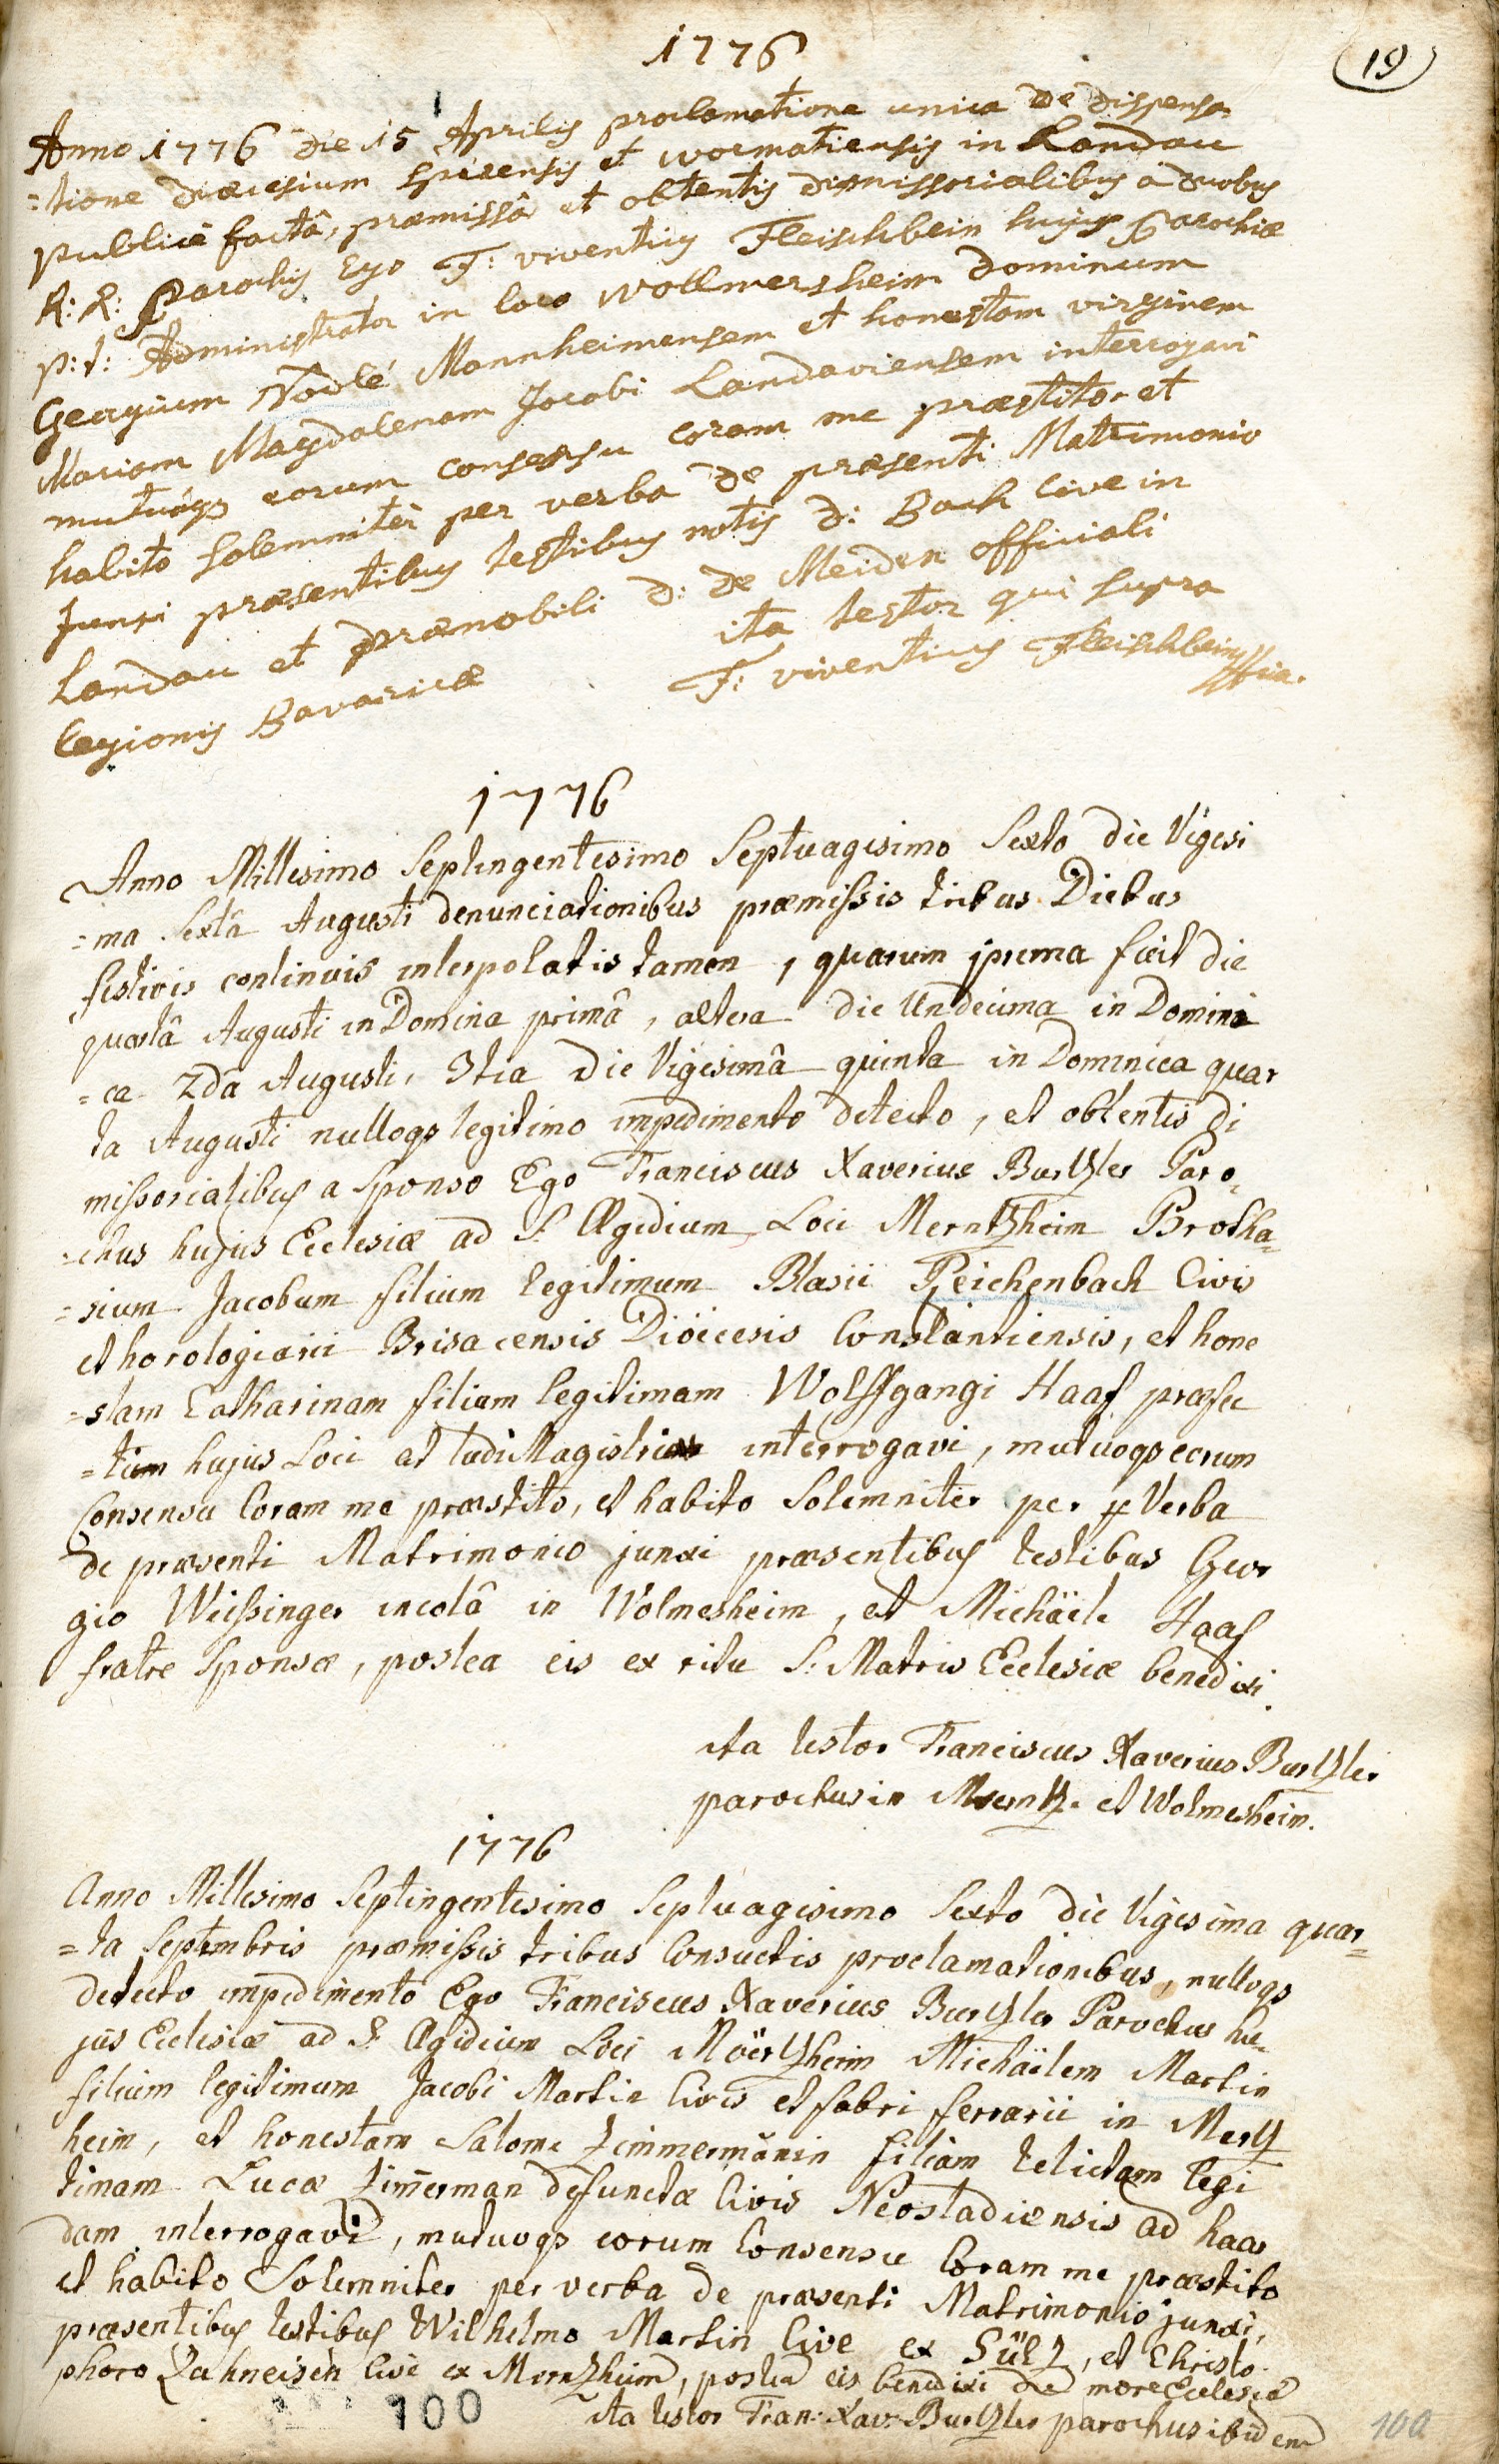 1776
19
Anno 1776 die 15 Aprilis proclamatione unica de dispensa
=tione dioecesium spirensis et wormatiensis in Landau
publice factâ, præmissâ et obtentis dimissorialibus a duobus
R: R: Parochis Ego F: viventius Fleischbein hujus Parochiæ
p: t: Administrator in loco Wollmersheim dominum
Georgium Mannheimensem et honestam virginem
Mariam Magdalenam Jacobi Landaviensem interrogavi
mutuoqs eorum consensu coram me præstito et
habito solemniter per verba de præsenti Matrimonio
Junxi præsentibus testibus notis d: Bach Cive in
Landau et prænobili d: de Meiden officiali
legionis Bavaricæ ita testor qui supra
F: viventius Fleischbein
1776
Anno Millesimo Septingentesimo Septuagesimo Sexto die Vigesi
=ma Sextâ Augusti denunciationibus præmissis tribus Diebus
festivis continuis interpolatis tamen, quarum prima fuit die
quartâ Augusti in Domina primâ, altera die Undecima in Domini
=ca 2dâ Augusti, 3tia die Vigesimâ quinta in Dominica quar
ta Augusti nulloqs legitimo impedimento detecto, et obtentis di
missorialibus a Sponso Ego Franciscus Xaverius Burtzler Paro,
=chus hujus Ecclesiæ ad S. Ægidium Loci Merntzheim Protha=
=sium Jacobum filium legitimum Blasii Reichenbach Civis
et horologiarii Brisacensis Dioecesis Constantiensis, et hone
=stam Catharinam filiam legitimam Wolffgangi Haaf præfec
=tum hujus Loci et ludiMagistri interrogavi, mutuoqs eorum
Consensu Coram me præstito, et habito Solemniter per Verba
de præsenti Matrimonio junxi præsentibus testibus Geor
gio Weissinger incolâ in Wolmesheim, et Michäele Haaf
fratre Sponsæ, postea eis ex ritu S: Matris Ecclesiæ benedixi.
ita testor Franciscus Xaverius Burtzler
parochus in Merntz. et Wolmesheim.
1776
Anno Millesimo Septingentesimo Septuagesimo Sexto die Vigesima quar=
=ta Septembris præmissis tribus Consuetis proclamationibus, nulloqs
detecto impedimento Ego Franciscus Xaverius Burtzler Parochus hu=
jus Ecclesiæ ad S. Ægidium Loci Möertzheim Michäelem Martin
filium legitimum Jacobi Martin Civis et fabri ferrarii in Mertz
heim, et honestam Salome Zimmermänin filiam relictam legi
timam Lucæ Zimerman defunctæ Civis Neostadiensis ad haar
dam interrogavi, mutuoqs eorum Consensu Coram me præstito
et habito Solemniter per verba de præsenti Matrimonio junxi,
præsentibus testibus Wilhelmo Martin Cive ex Sültz, et Christo-
phoro Zahneisen Cive ex Merntzheim, postea eis benedixi de more Ecclesiæ
ita testor Fran: Xav: Burtzler parochus ibidem
100
100